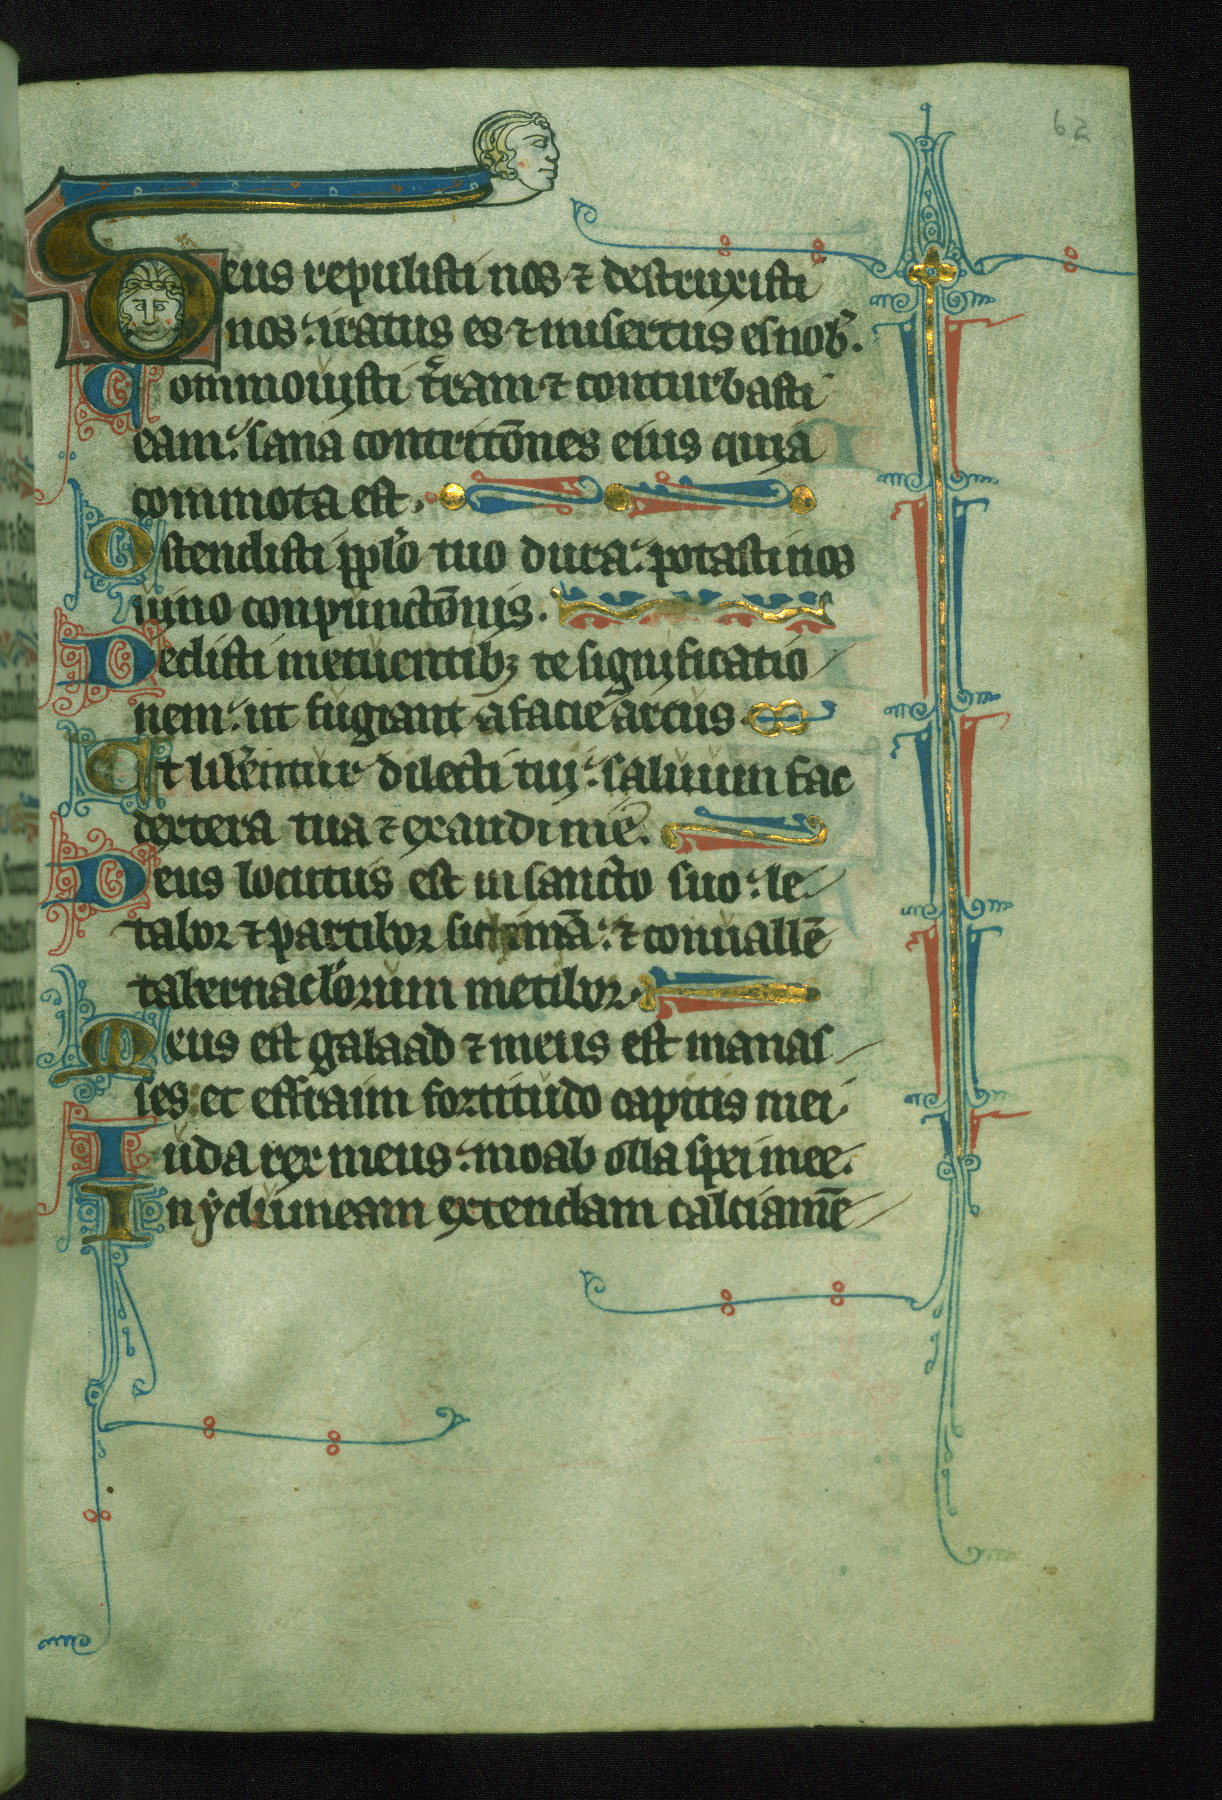 62
Deus repulisti nos ⁊ destruxisti
nos: iratus es ⁊ misertus es nob̾.
Commouisti t̾ram ⁊ conturbasti
eam: sana contritōnes eius quia
commota est.
Ostendisti pplo tuo dura: potasti nos
uino conpunctōnis.
Dedisti metuentibꝫ te significatio
nem: ut fugiant a facie arcus.
Ut lib̾entur dilecti tui: saluum fac
dextera tua ⁊ exaudi me.
Deus locutus est in sancto suo: le
tabor ⁊ partibor sichimā: ⁊ conuallē
tabernaclorum metibor.
Meus est galaad ⁊ meus est manas
ses et effraim fortitudo capitis mei
Iuda rex meus: moab olla spei mee.
In ydumeam extendam calciamē